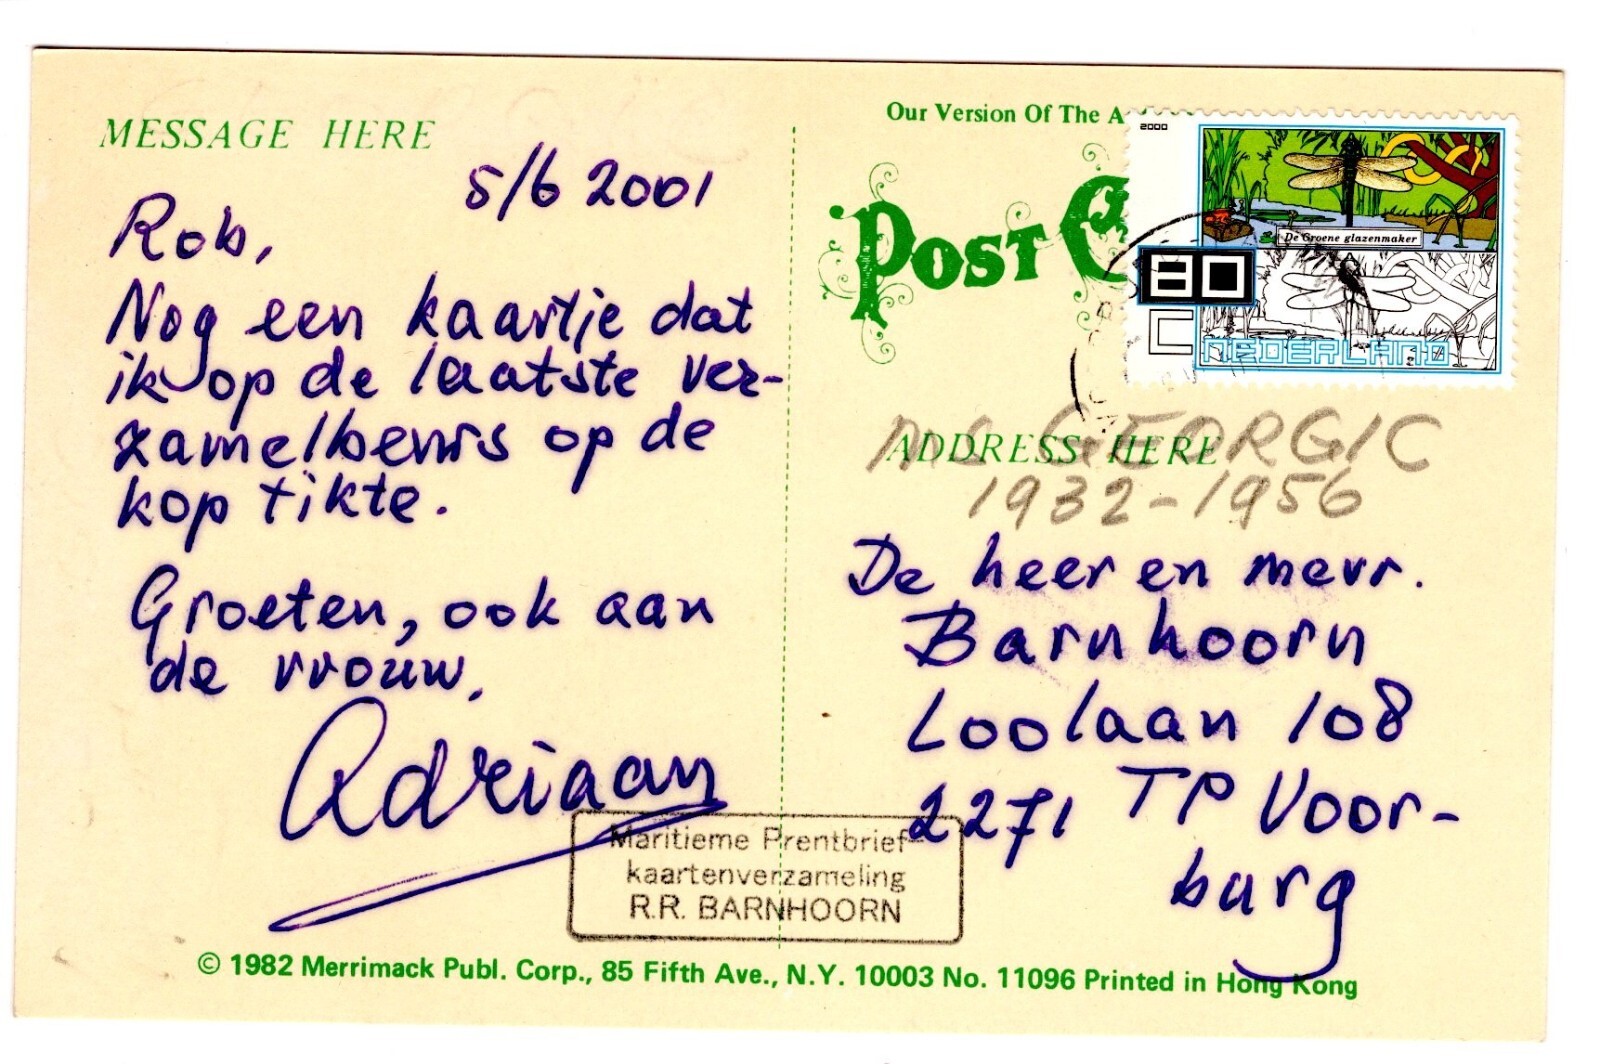 MESSAGE HERE
5/6 2001
Rob,
Nog een kaartje dat
ik op de laatste ver-
zamelbeurs op de
kop tikte.
Groeten, ook aan
de vrouw.
Adriaan
Maritieme Prentbrief-
kaartenverzameling
R.R. BARNHOORN
Our Version Of The
POST
2000
De Groene glazenmaker
80
C
NEDERLAND
ADDRESS HERE
GEORGIC
1932-1956
De heer en mevr.
Barnhoorn
Loolaan 108
2271 TP Voor-
burg
© 1982 Merrimack Publ. Corp., 85 Fifth Ave., N.Y. 10003 No. 11096 Printed in Hong Kong